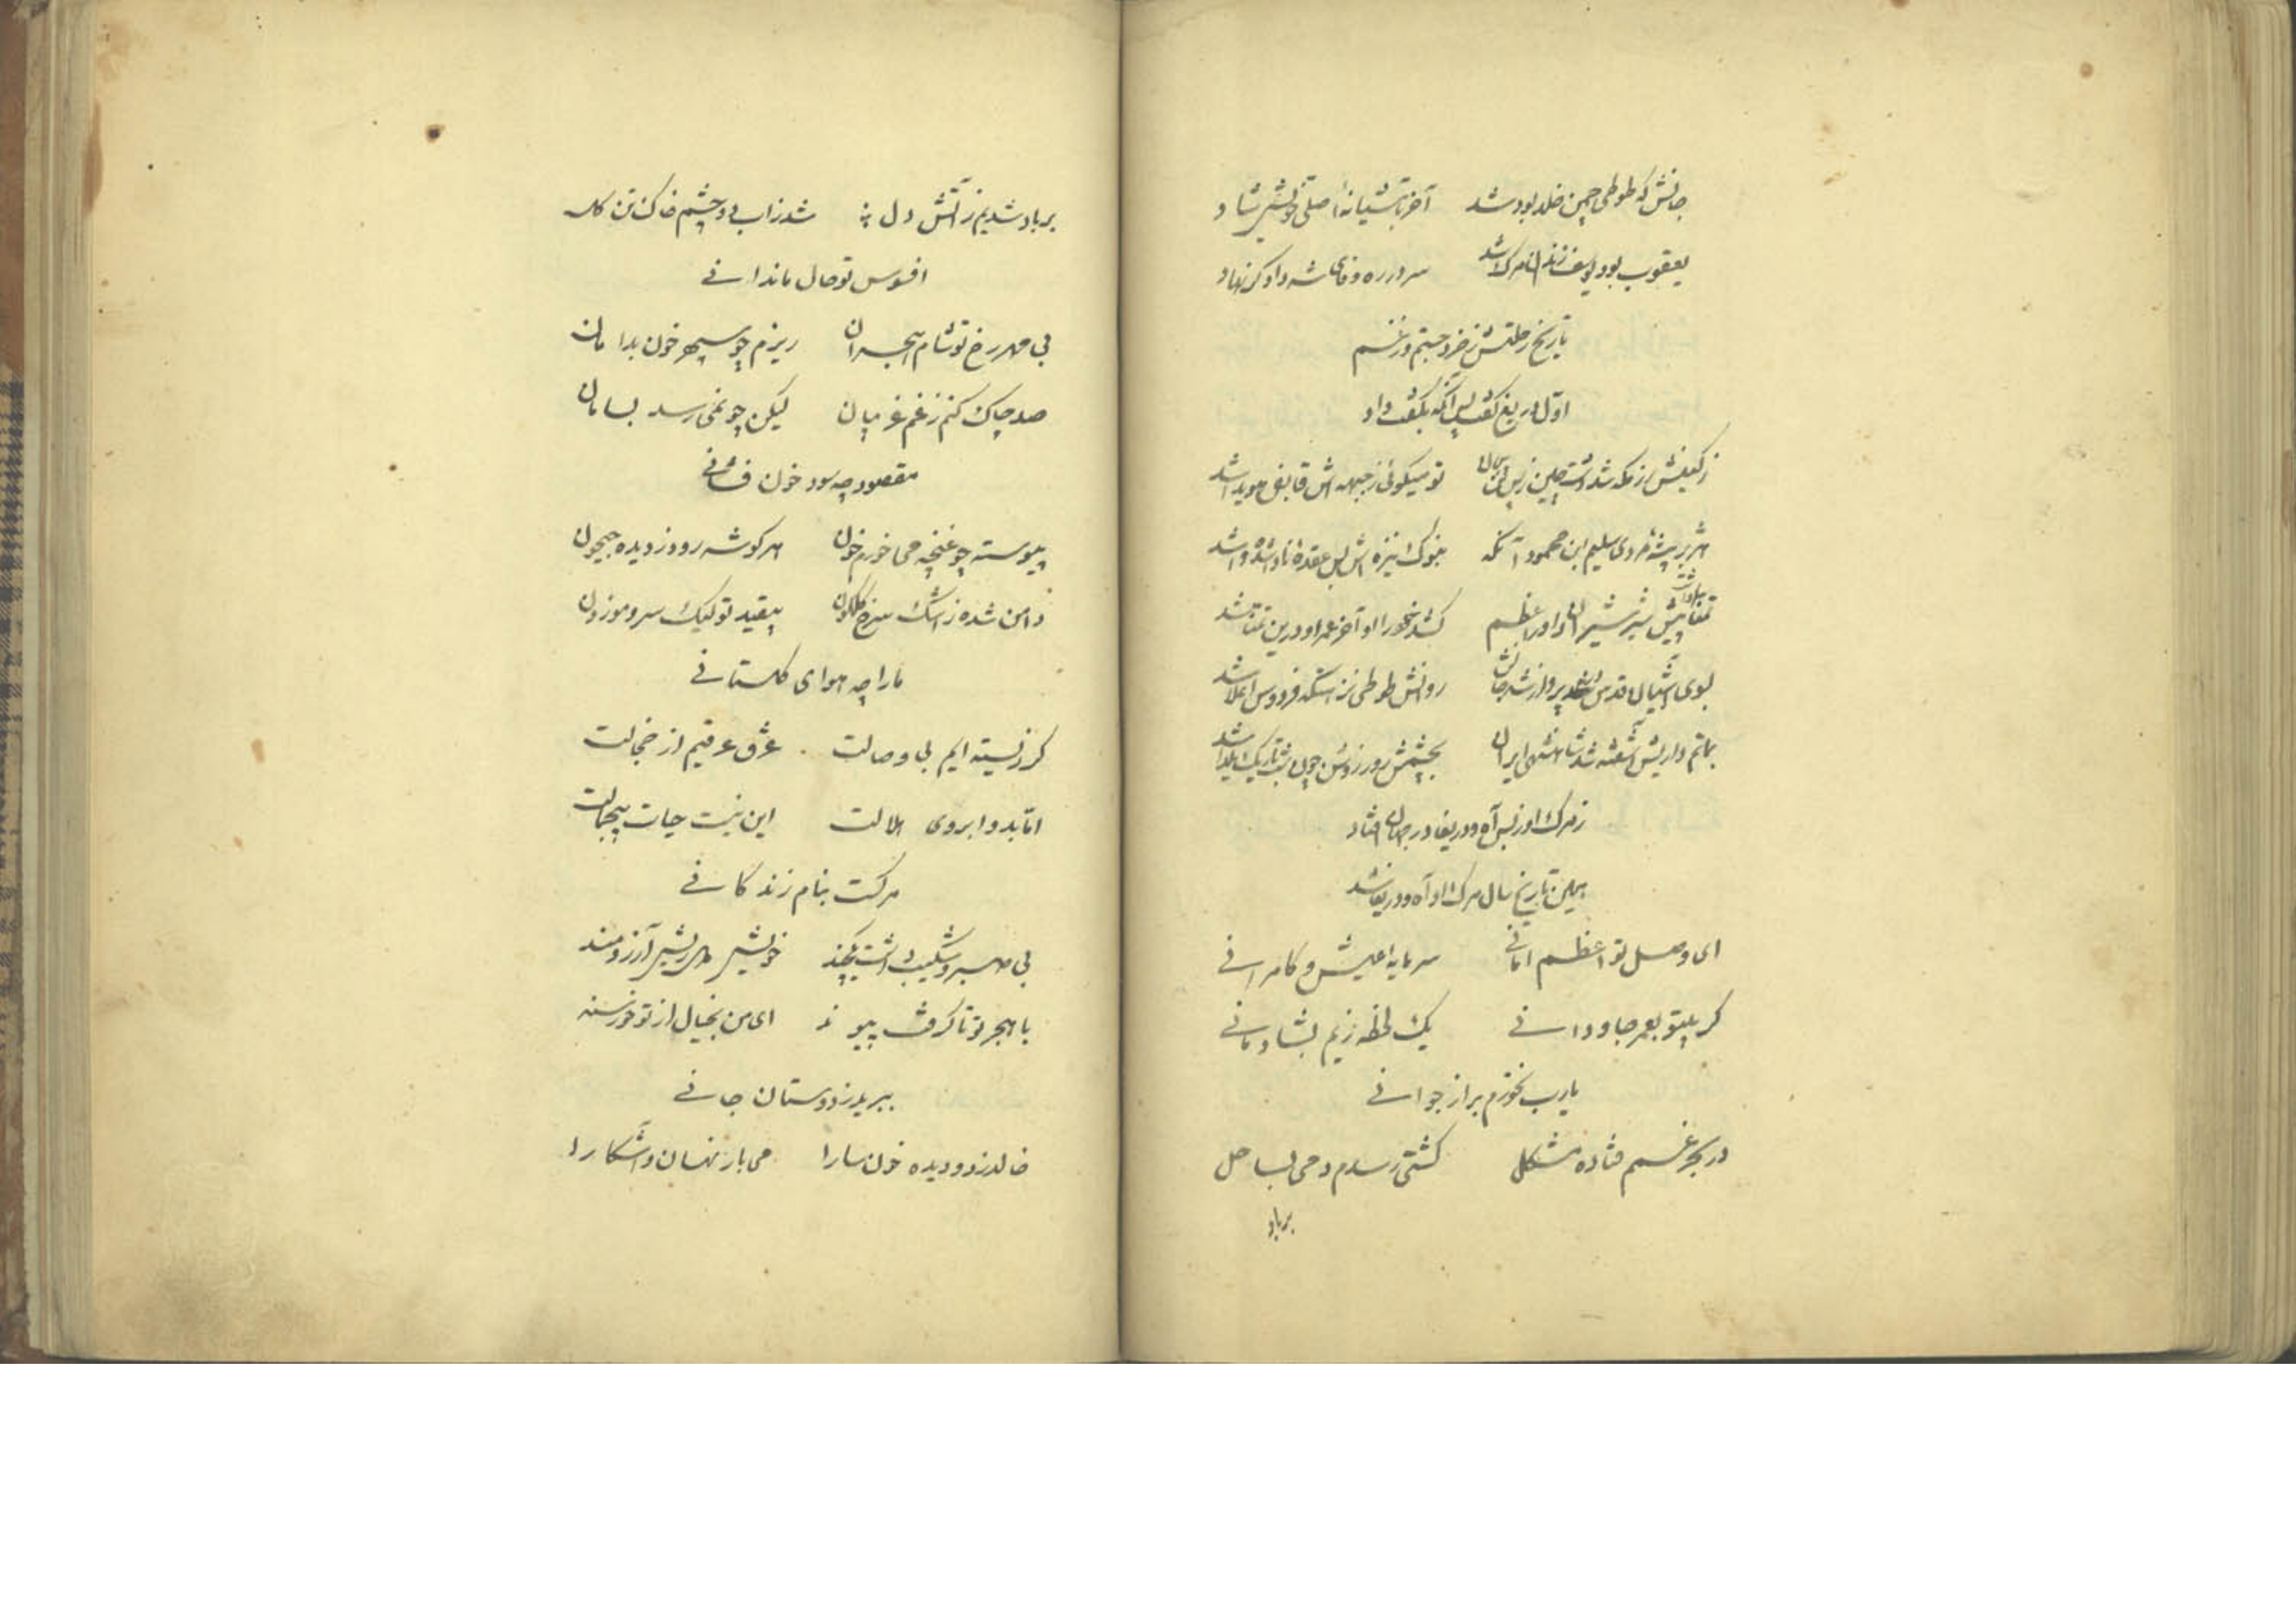 جانش که طوطی چمن خلد بود شد آخر باشیانهٔ اصلی خویش شاد
یعقوب بود یوسف زندان مرک شد سر در ره وفای شه داد کر نهاد
تاریخ رحلتش ز خرد جستم و ز غم
اوّل دریغ کفت پس آنکه بکفت داد
تو میکوئی ز جبهه اش
هژبر بیشهٔ مردی سلیم ابن محمود آنکه بنوک نیزه اش بس عقدهٔ ناواشده واشد
شیر شیران داور اعظم آخر عمر او درین تمنا شد
بسوی آشیان قدس پرواز شد جانش روانش طوطی نزهتکه فردوس اعلا شد
بماتم داریش آشفته شد شاهنشهی ایران بچشمش روز روشن چون شب تاریک یلدا شد
ز مرک او ز بس آه و دریغا در جهان افتاد
همین تاریخ سال مرک او آه و دریغا شد
ای وصل تو اعظم امانی سرمایه عیش و کامرانی
کر بیتو بعمر جاودانی یک لحظه زیم بشادمانی
یارب نخورم بر از جوانی
در بحر غم فتاده مشکل کشتی رسدم دمی بساحل
برباد
برباد شدیم ز آتش دل شد زاب دو چشم خاک تن کل
افسوس تو حال ما ندانی
بی مهر رخ تو شام هجران ریزم چو سپهر خون بدامان
صد چاک کنم ز غم کریبان لیکن چو نمی رسد بسامان
مقصود چه سود خون فشانی
پیوسته چو غنچه می خورم خون هر کوشه رود ز دیده جیحون
دامن شده ز اشک سرخ کلکون بیقید تو لیک سرو موزون
ما را چه هوای کلستانی
کر زیسته ایم بی وصالت غرق عرقیم از خجالت
امّا بدو ابروی هلالت این نیست حیات بیجمالت
مرکست بنام زندکانی
بی صبر و شکیب داشت یکچند خویش دل ریش آرزومند
با هجر تو تا کرفت پیوند ای من بخیال از تو خورسند
ببرید ز دوستان جانی
خالد ز دو دیده خون سارا می بار نهان و آشکارا